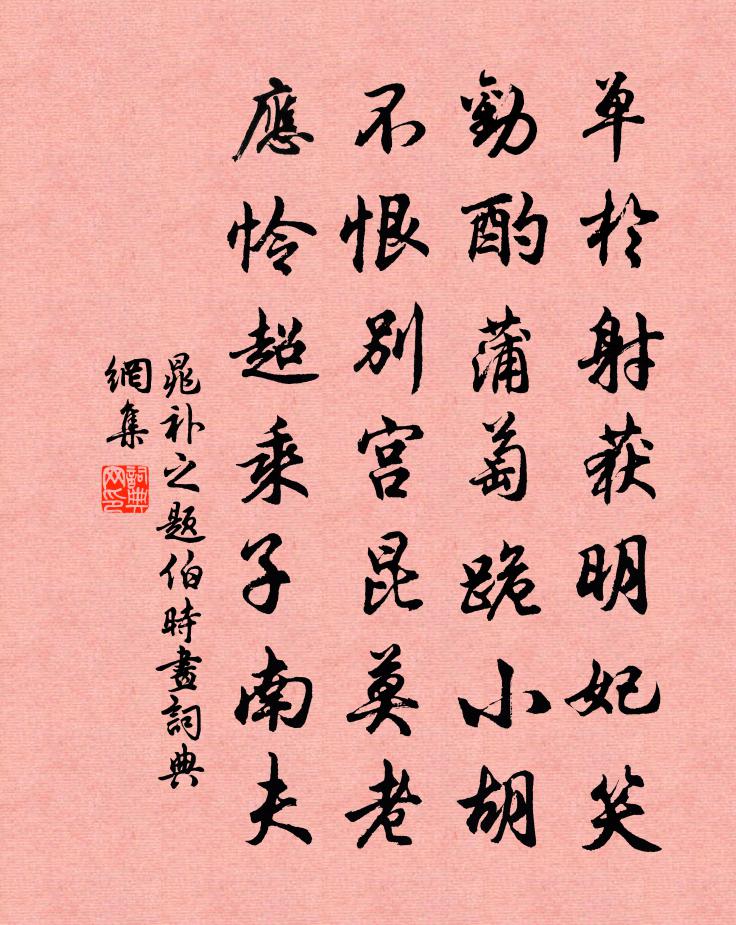 单於射获明妃笑
勸酌蒲萄跪小胡
不恨別宫昆莫老
應怜超乘子南夫
晁补之题伯時畫詞典
網集
詞典
网印